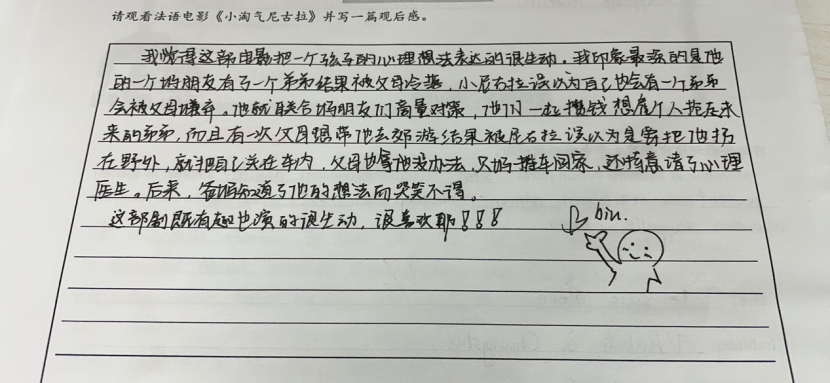 请观看法语电影《小淘气尼古拉》并写一篇观后感。
我觉得这部电影把一个孩子的心理想法表达的很生动。我印象最深的是他
的一个好朋友有了一个弟弟结果被父母冷落，小尼古拉误以为自己也会有一个弟弟
会被父母嫌弃。他就联合好朋友们商量对策，他们一起攒钱想雇个人抢在未
来的弟弟，而且有一次父母想带他去郊游结果被尼古拉误以为是要把他扔
在野外，就把自己关在车内，父母也拿他没办法，只好推车回家，还特意请了心理
医生。后来，爸妈知道了他的想法而哭笑不得。
这部剧既有趣也演的很生动，很喜欢耶！！！
biu.